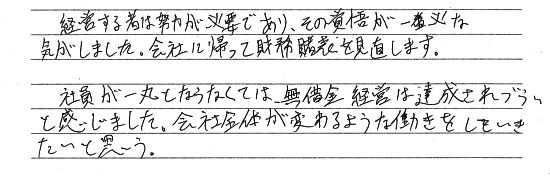 経営する者は努力が必要であり、その覚悟が一番必な
気がしました。会社に帰って財務諸表を見直します。
社員が一丸とならなくては、無借金経営は達成されづらい
と感じました。会社全体が変わるような働きをしていき
たいと思う。